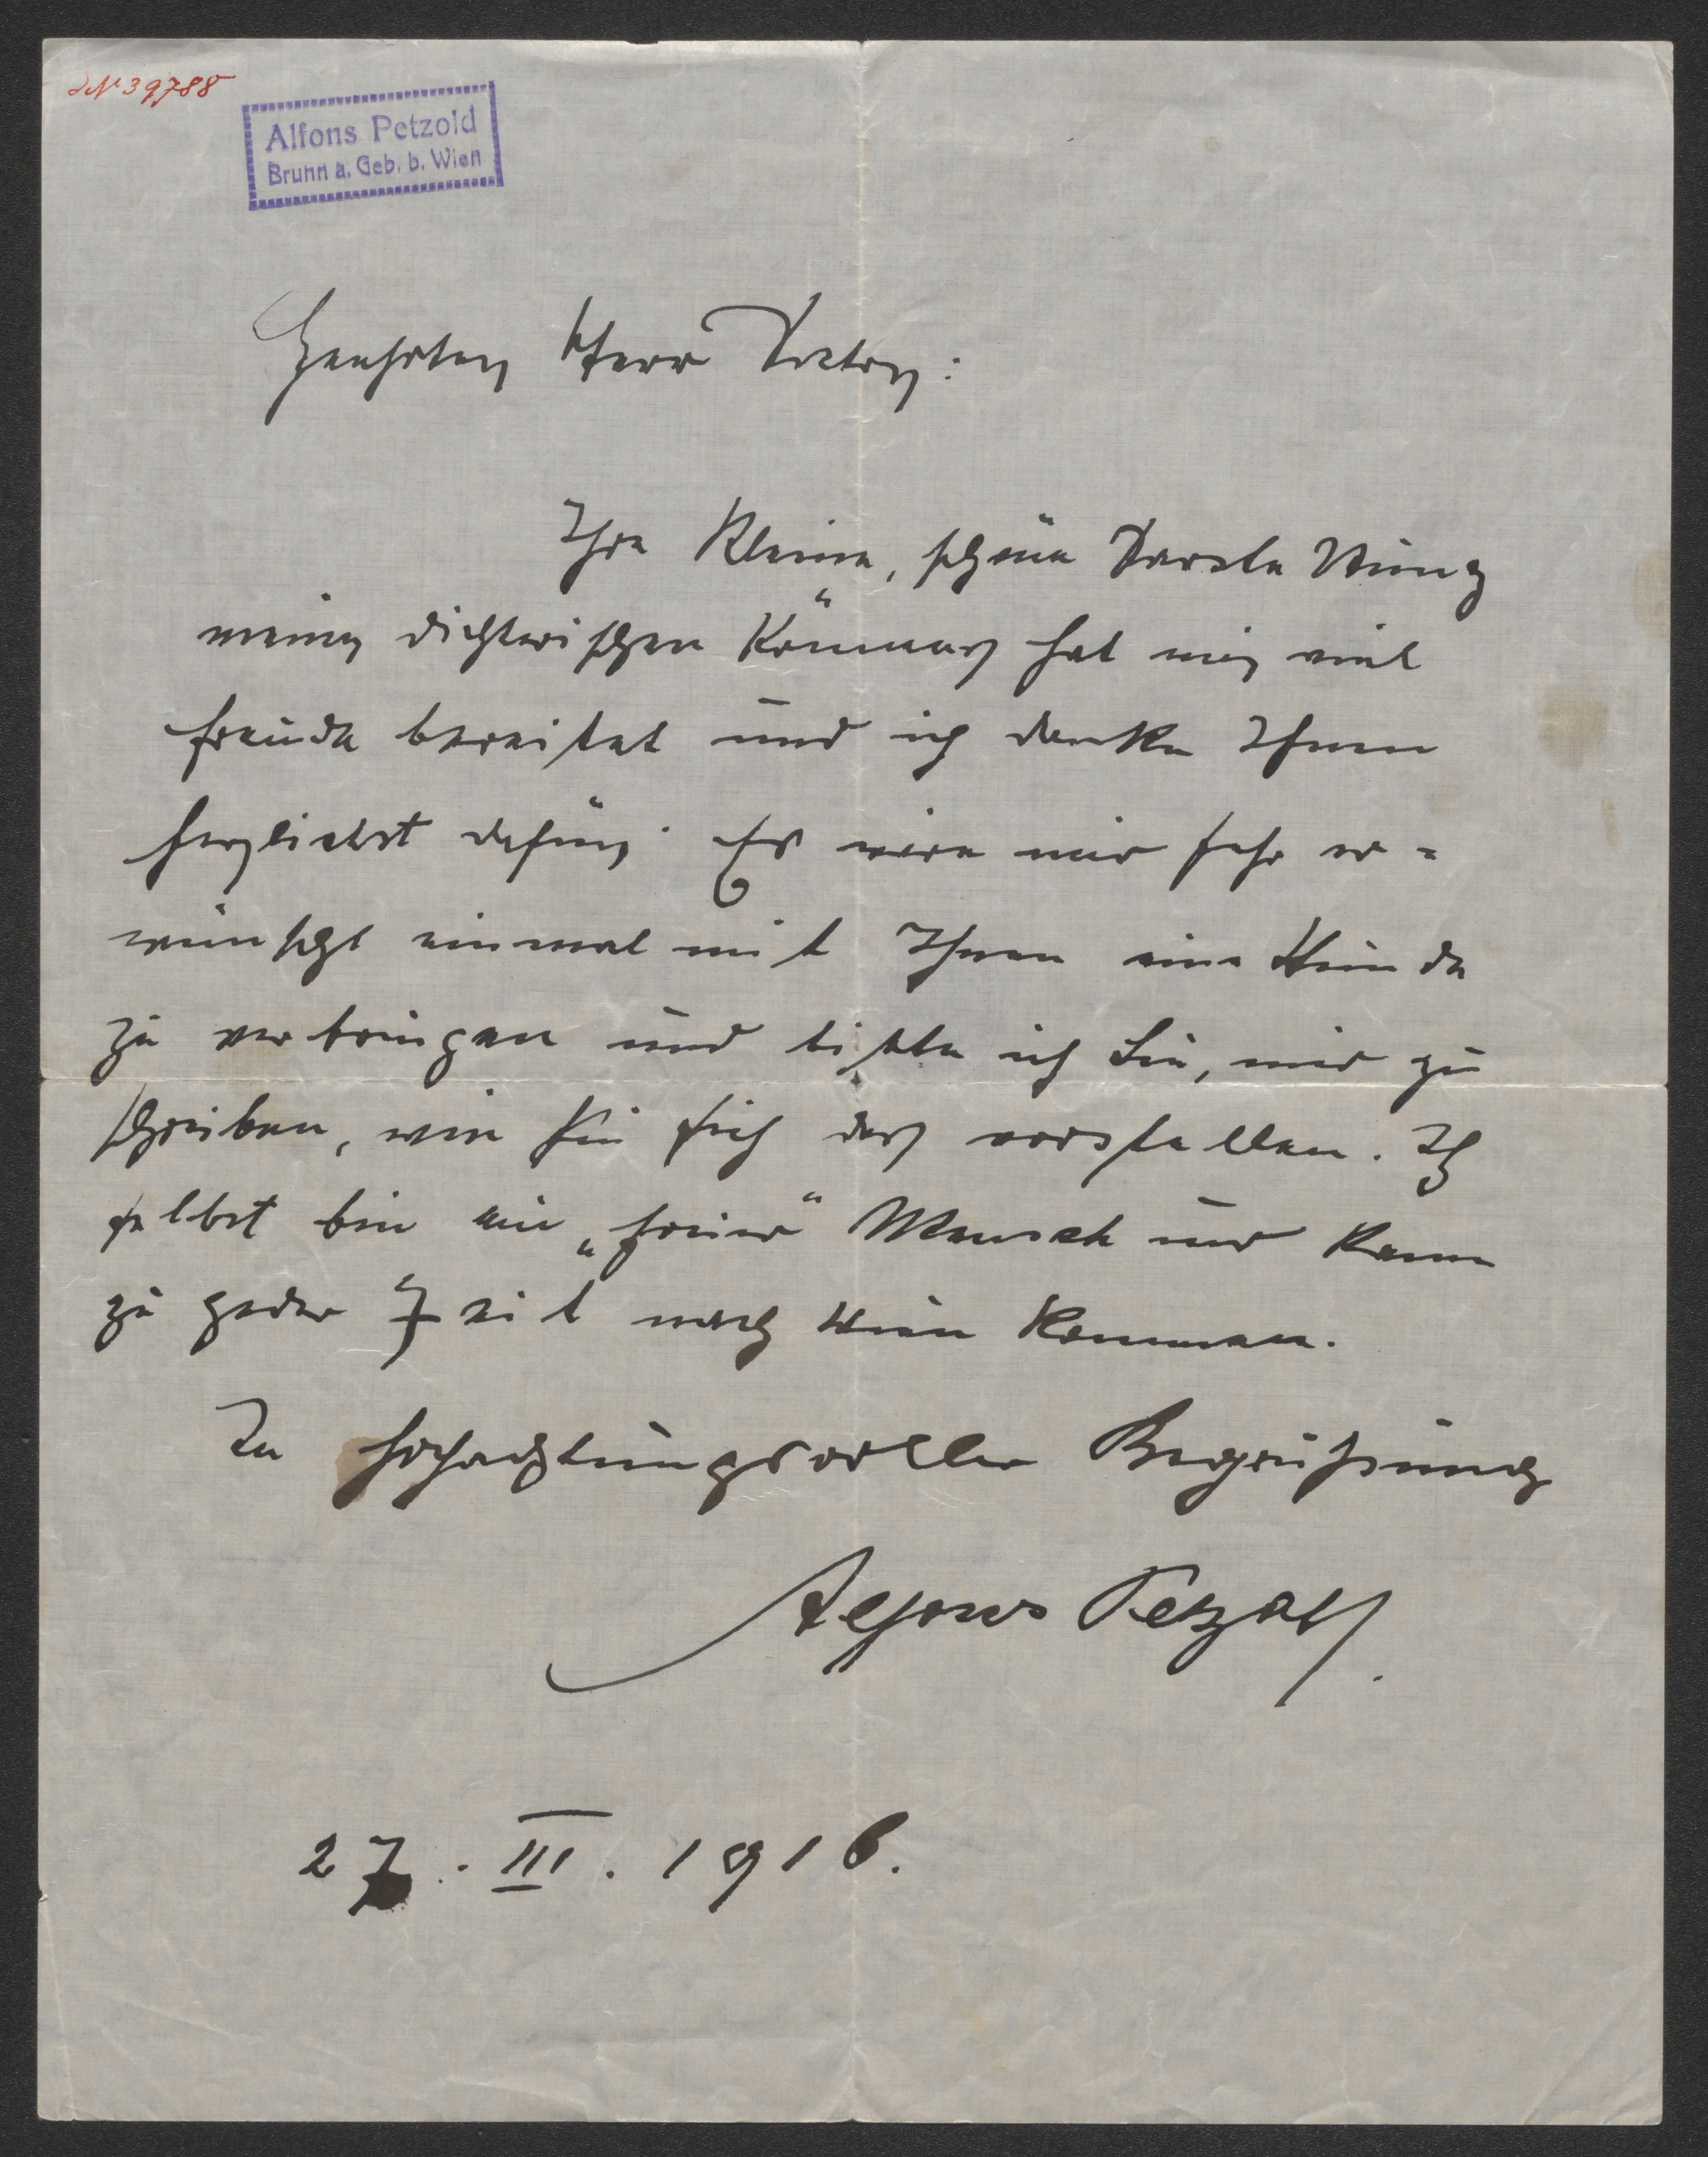 IN 39788
Alfons Petzold
Brunn a. Geb. b. Wien
Geehrter Herr Doktor:
Ihre kleine, schöne Darstellung
meines dichterischen Könnens hat mir viel
Freude bereitet und ich danke Ihnen
herzlichst dafür. Es wäre mir sehr er-
wünscht einmal mit Ihnen eine Stunde
zu verbringen und bitte ich Sie, mir zu
schreiben, wie Sie sich das vorstellen. Ich
selbst bin ein „freier“ Mensch und kann
zu jeder Zeit nach Wien kommen.
In hochachtungsvoller Begrüßung
Alfons Petzold.
27. III. 1916.